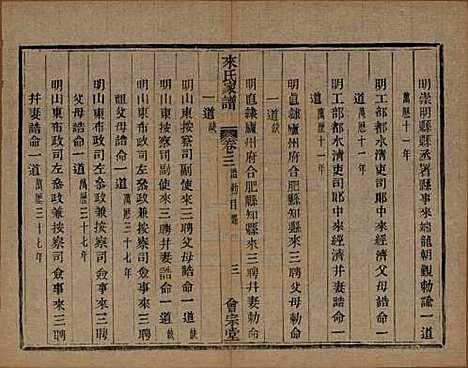 明崇明縣縣丞署縣事來端龍朝覲勅諭一道
萬歷十一年
明工部都水淸吏司郎中來經濟父母誥命一
道 萬歷十一年
明工部都水淸吏司郎中來經濟幷妻誥命一
道
明直隸廬州府合肥縣知縣來三聘幷妻勅命
一道缺
來氏家譜 卷三 誥勅目錄 三 會宗堂
明直隸廬州府合肥縣知縣來三聘父母勅命
一道缺
明山東按察司副使來三聘父母誥命一道缺
明山東按察司副使來三聘幷妻誥命一道缺
明山東布政司左叅政兼按察司僉事來三聘
祖父母誥命一道 萬歷三十七年
明山東布政司左叅政兼按察司僉事來三聘
父母誥命一道 萬歷三十七年
明山東布政司左叅政兼按察司僉事來三聘
幷妻誥命一道 萬歷三十七年